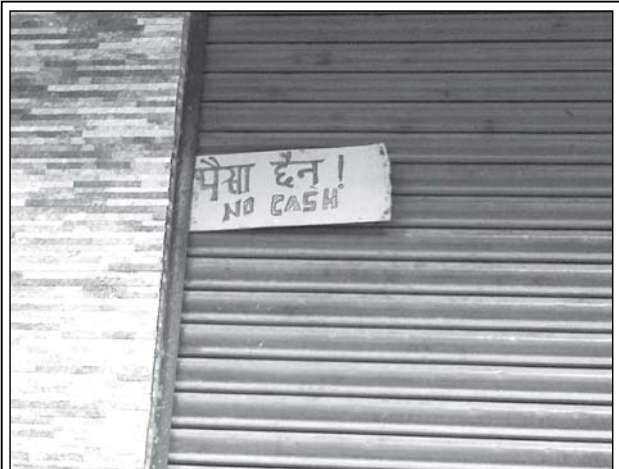 पैसा छैन्!
NO CASH